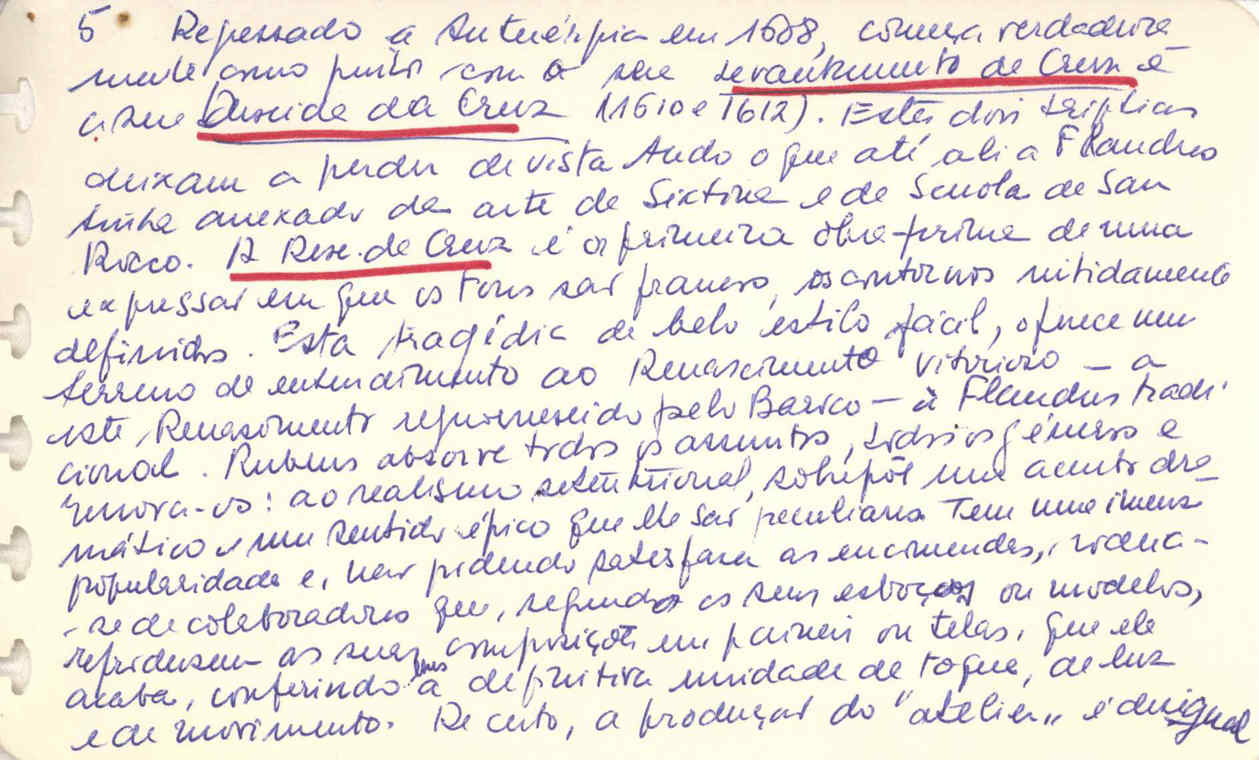 5 Regressado a Antuérpia em 1608, começa verdadeira
mente como pintor com o seu Levantamento da Cruz e
a sua Descida da Cruz (1610 e 1612). Estes dois trípticos
deixam a perder de vista tudo o que até ali a Flandres
tinha anexado da arte da Sixtina e da Scuola de San
Rocco. A Desc. da Cruz é a primeira obra-prima de uma
expressão em que os tons são francos, os contornos nitidamente
definidos. Esta tragédia de belo estilo fácil, oferece um
terreno de entendimento ao Renascimento vitorioso — a
este Renascimento rejuvenescido pelo Barroco — à Flandres tradi
cional. Rubens absorve todos os assuntos, todos os géneros e
renova-os: ao realismo setentrional, sobrepõe um acento dra
mático e um sentido épico que lhe são peculiares. Tem uma imensa
popularidade e, não podendo satisfazer as encomendas, rodeia-
-se de colaboradores que, segundo os seus esboços ou modelos,
reproduzem as suas composições em painéis ou telas, que ele
acaba, conferindo lhes a definitiva unidade de toque, de luz
e de movimento. De certo, a produção do "atelier" é desigual